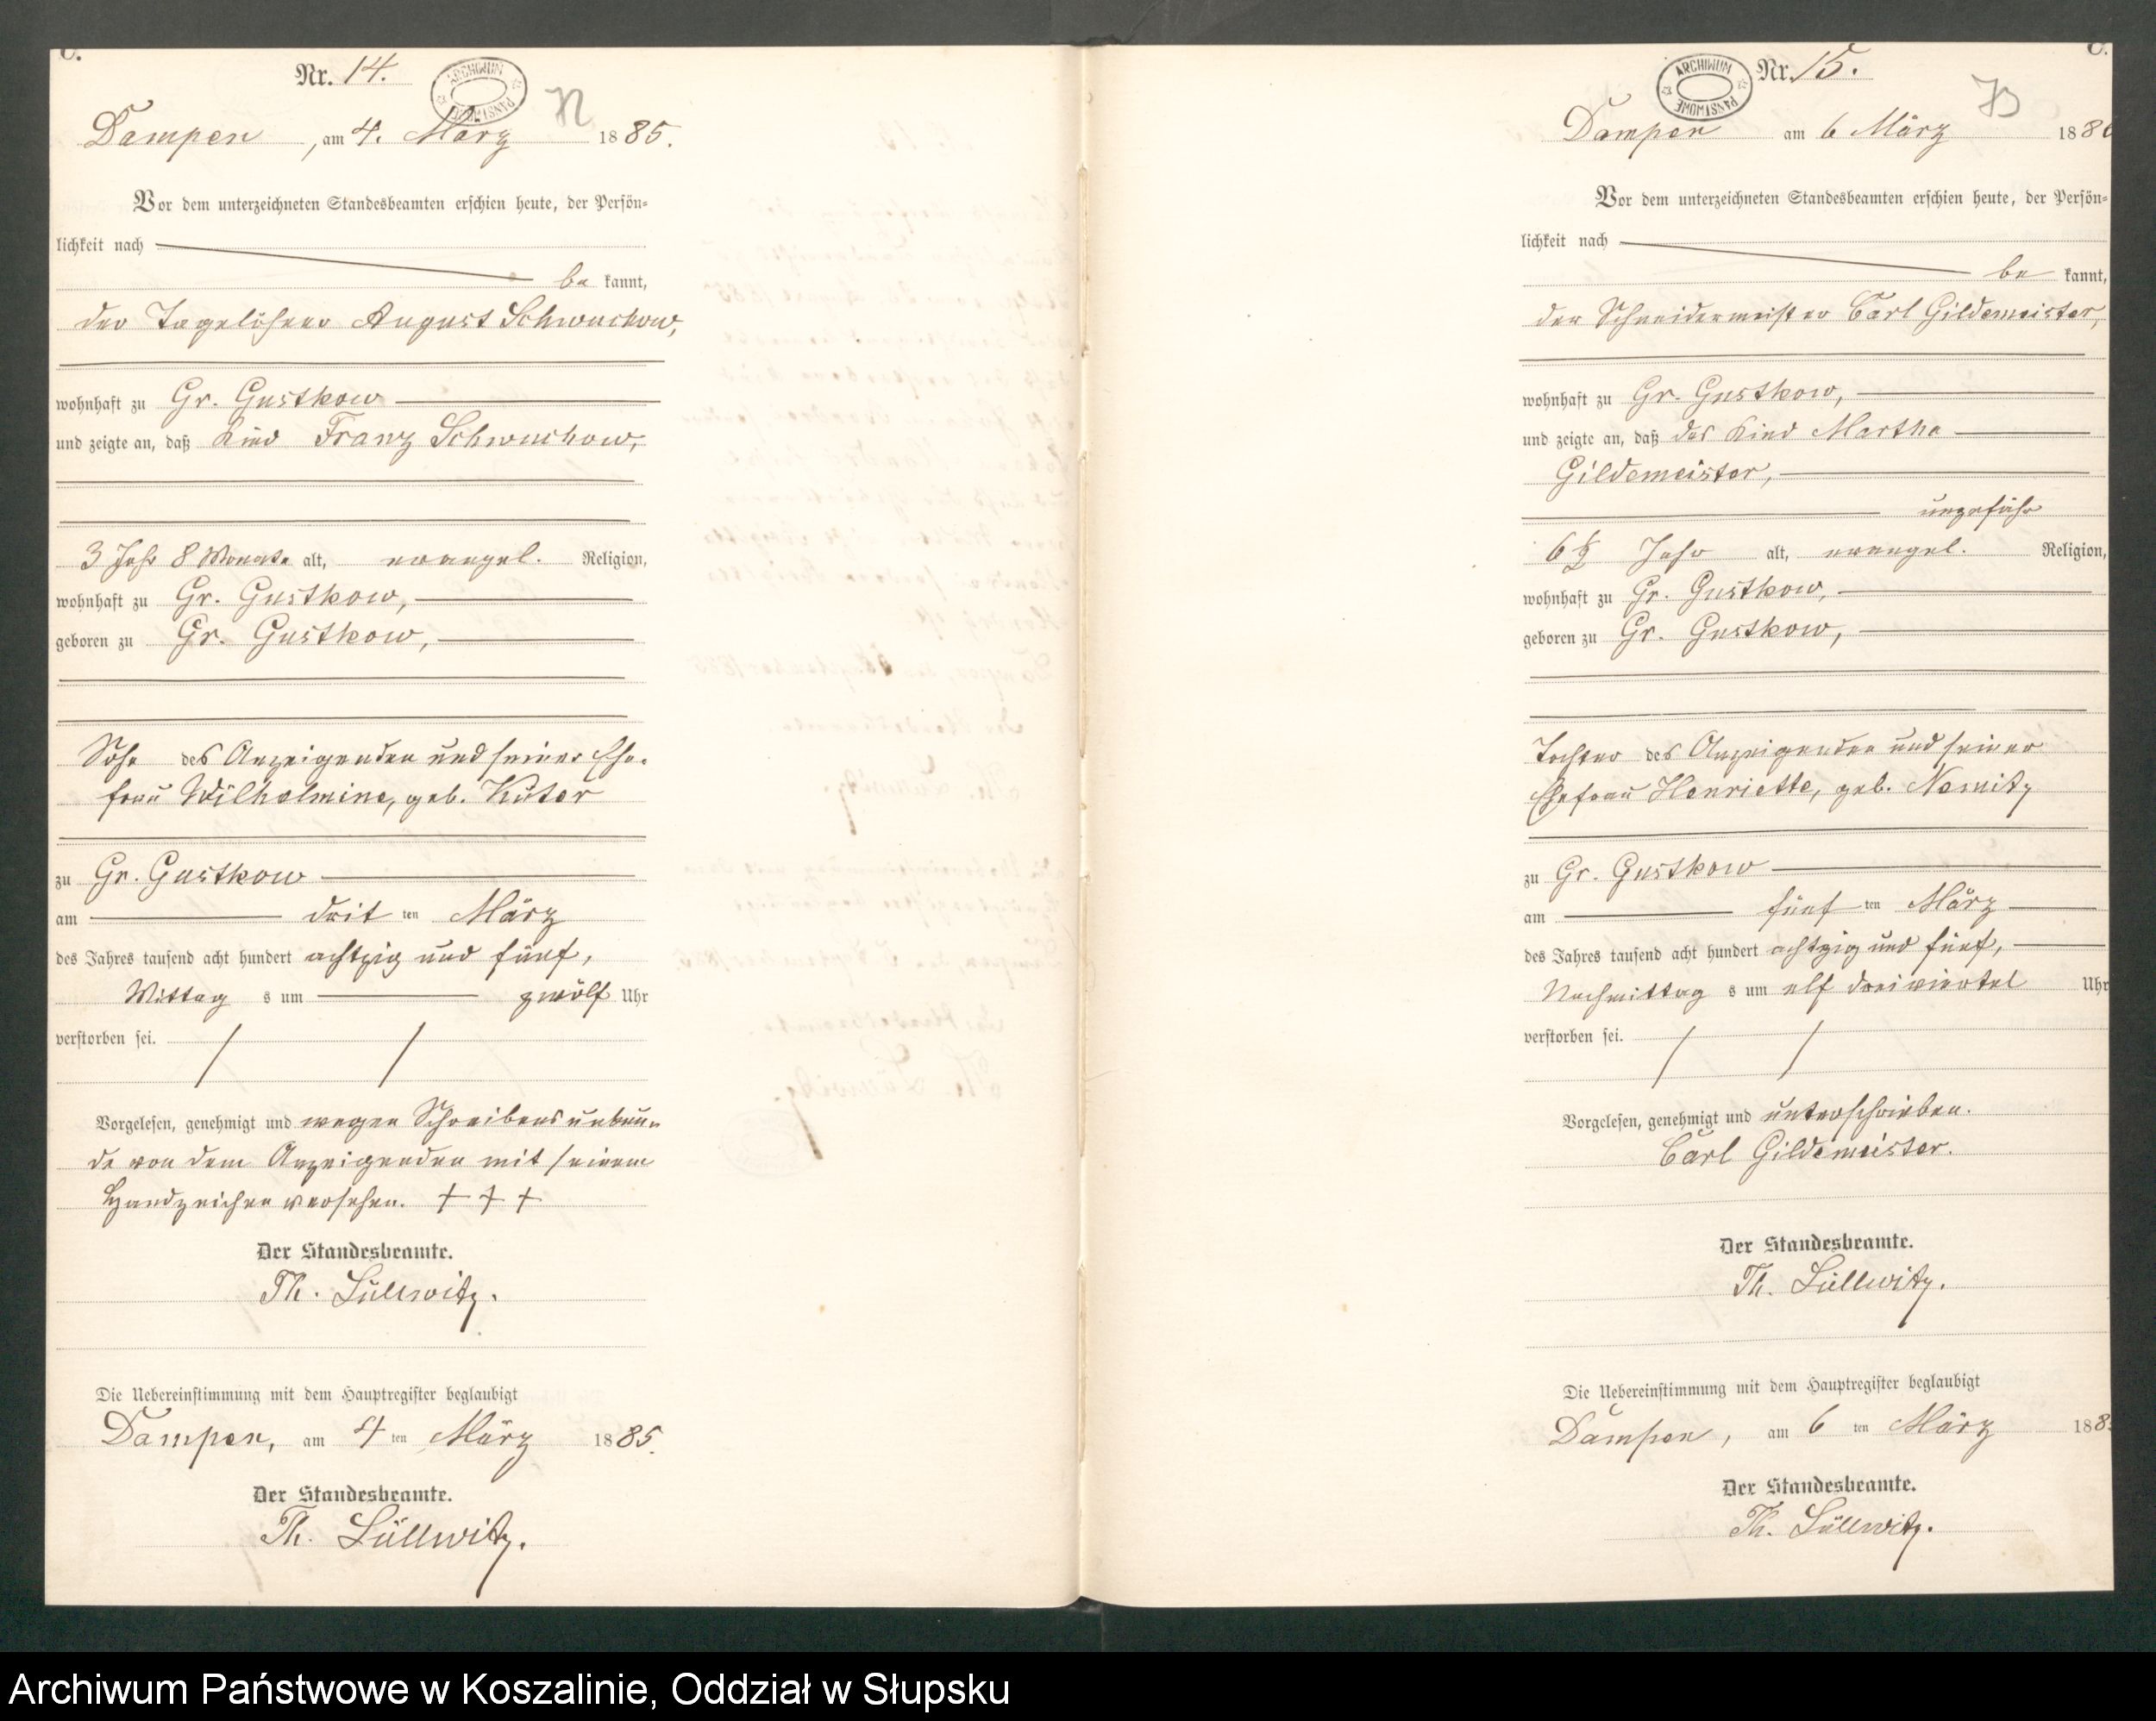 C.
Nr. 14.
ARCHIWUM PAŃSTWOWE
Dampen, am 4. März 1885.
Vor dem unterzeichneten Standesbeamten erschien heute, der Persön-
lichkeit nach
be kannt,
der Tagelöhner August Schwuchow,
wohnhaft zu Gr. Gustkow
und zeigte an, daß Kind Franz Schwuchow,
3 Jahr 8 Monate alt, evangel. Religion,
wohnhaft zu Gr. Gustkow,
geboren zu Gr. Gustkow,
Sohn des Anzeigenden und seiner Ehe-
frau Wilhelmine, geb. Küter
zu Gr. Gustkow
am dritten März
des Jahres tausend acht hundert achtzig und fünf,
Mittags um zwölf Uhr
verstorben sei.
Vorgelesen, genehmigt und wegen Schreibensunkun-
de von dem Anzeigenden mit seinem
Handzeichen versehen. + + +
Der Standesbeamte.
Th. Lüllwitz.
Die Uebereinstimmung mit dem Hauptregister beglaubigt
Dampen, am 4ten März 1885.
Der Standesbeamte.
Th. Lüllwitz.
C.
Nr. 15.
ARCHIWUM PAŃSTWOWE
13
Dampen am 6 März 188
Vor dem unterzeichneten Standesbeamten erschien heute, der Persön-
lichkeit nach
be kannt,
der Schneidermeister Carl Gildemeister,
wohnhaft zu Gr. Gustkow,
und zeigte an, daß das Kind Martha
Gildemeister,
ungefähr
6½ Jahr alt, evangel. Religion,
wohnhaft zu Gr. Gustkow,
geboren zu Gr. Gustkow,
Tochter des Anzeigenden und seiner
Ehefrau Henriette, geb. Nemitz
zu Gr. Gustkow
am fünften März
des Jahres tausend acht hundert achtzig und fünf,
Nachmittags um elf dreiviertel Uhr
verstorben sei.
Vorgelesen, genehmigt und unterschrieben.
Carl Gildemeister.
Der Standesbeamte.
Th. Lüllwitz.
Die Uebereinstimmung mit dem Hauptregister beglaubigt
Dampen, am 6ten März 188
Der Standesbeamte.
Th. Lüllwitz.
Archiwum Państwowe w Koszalinie, Oddział w Słupsku